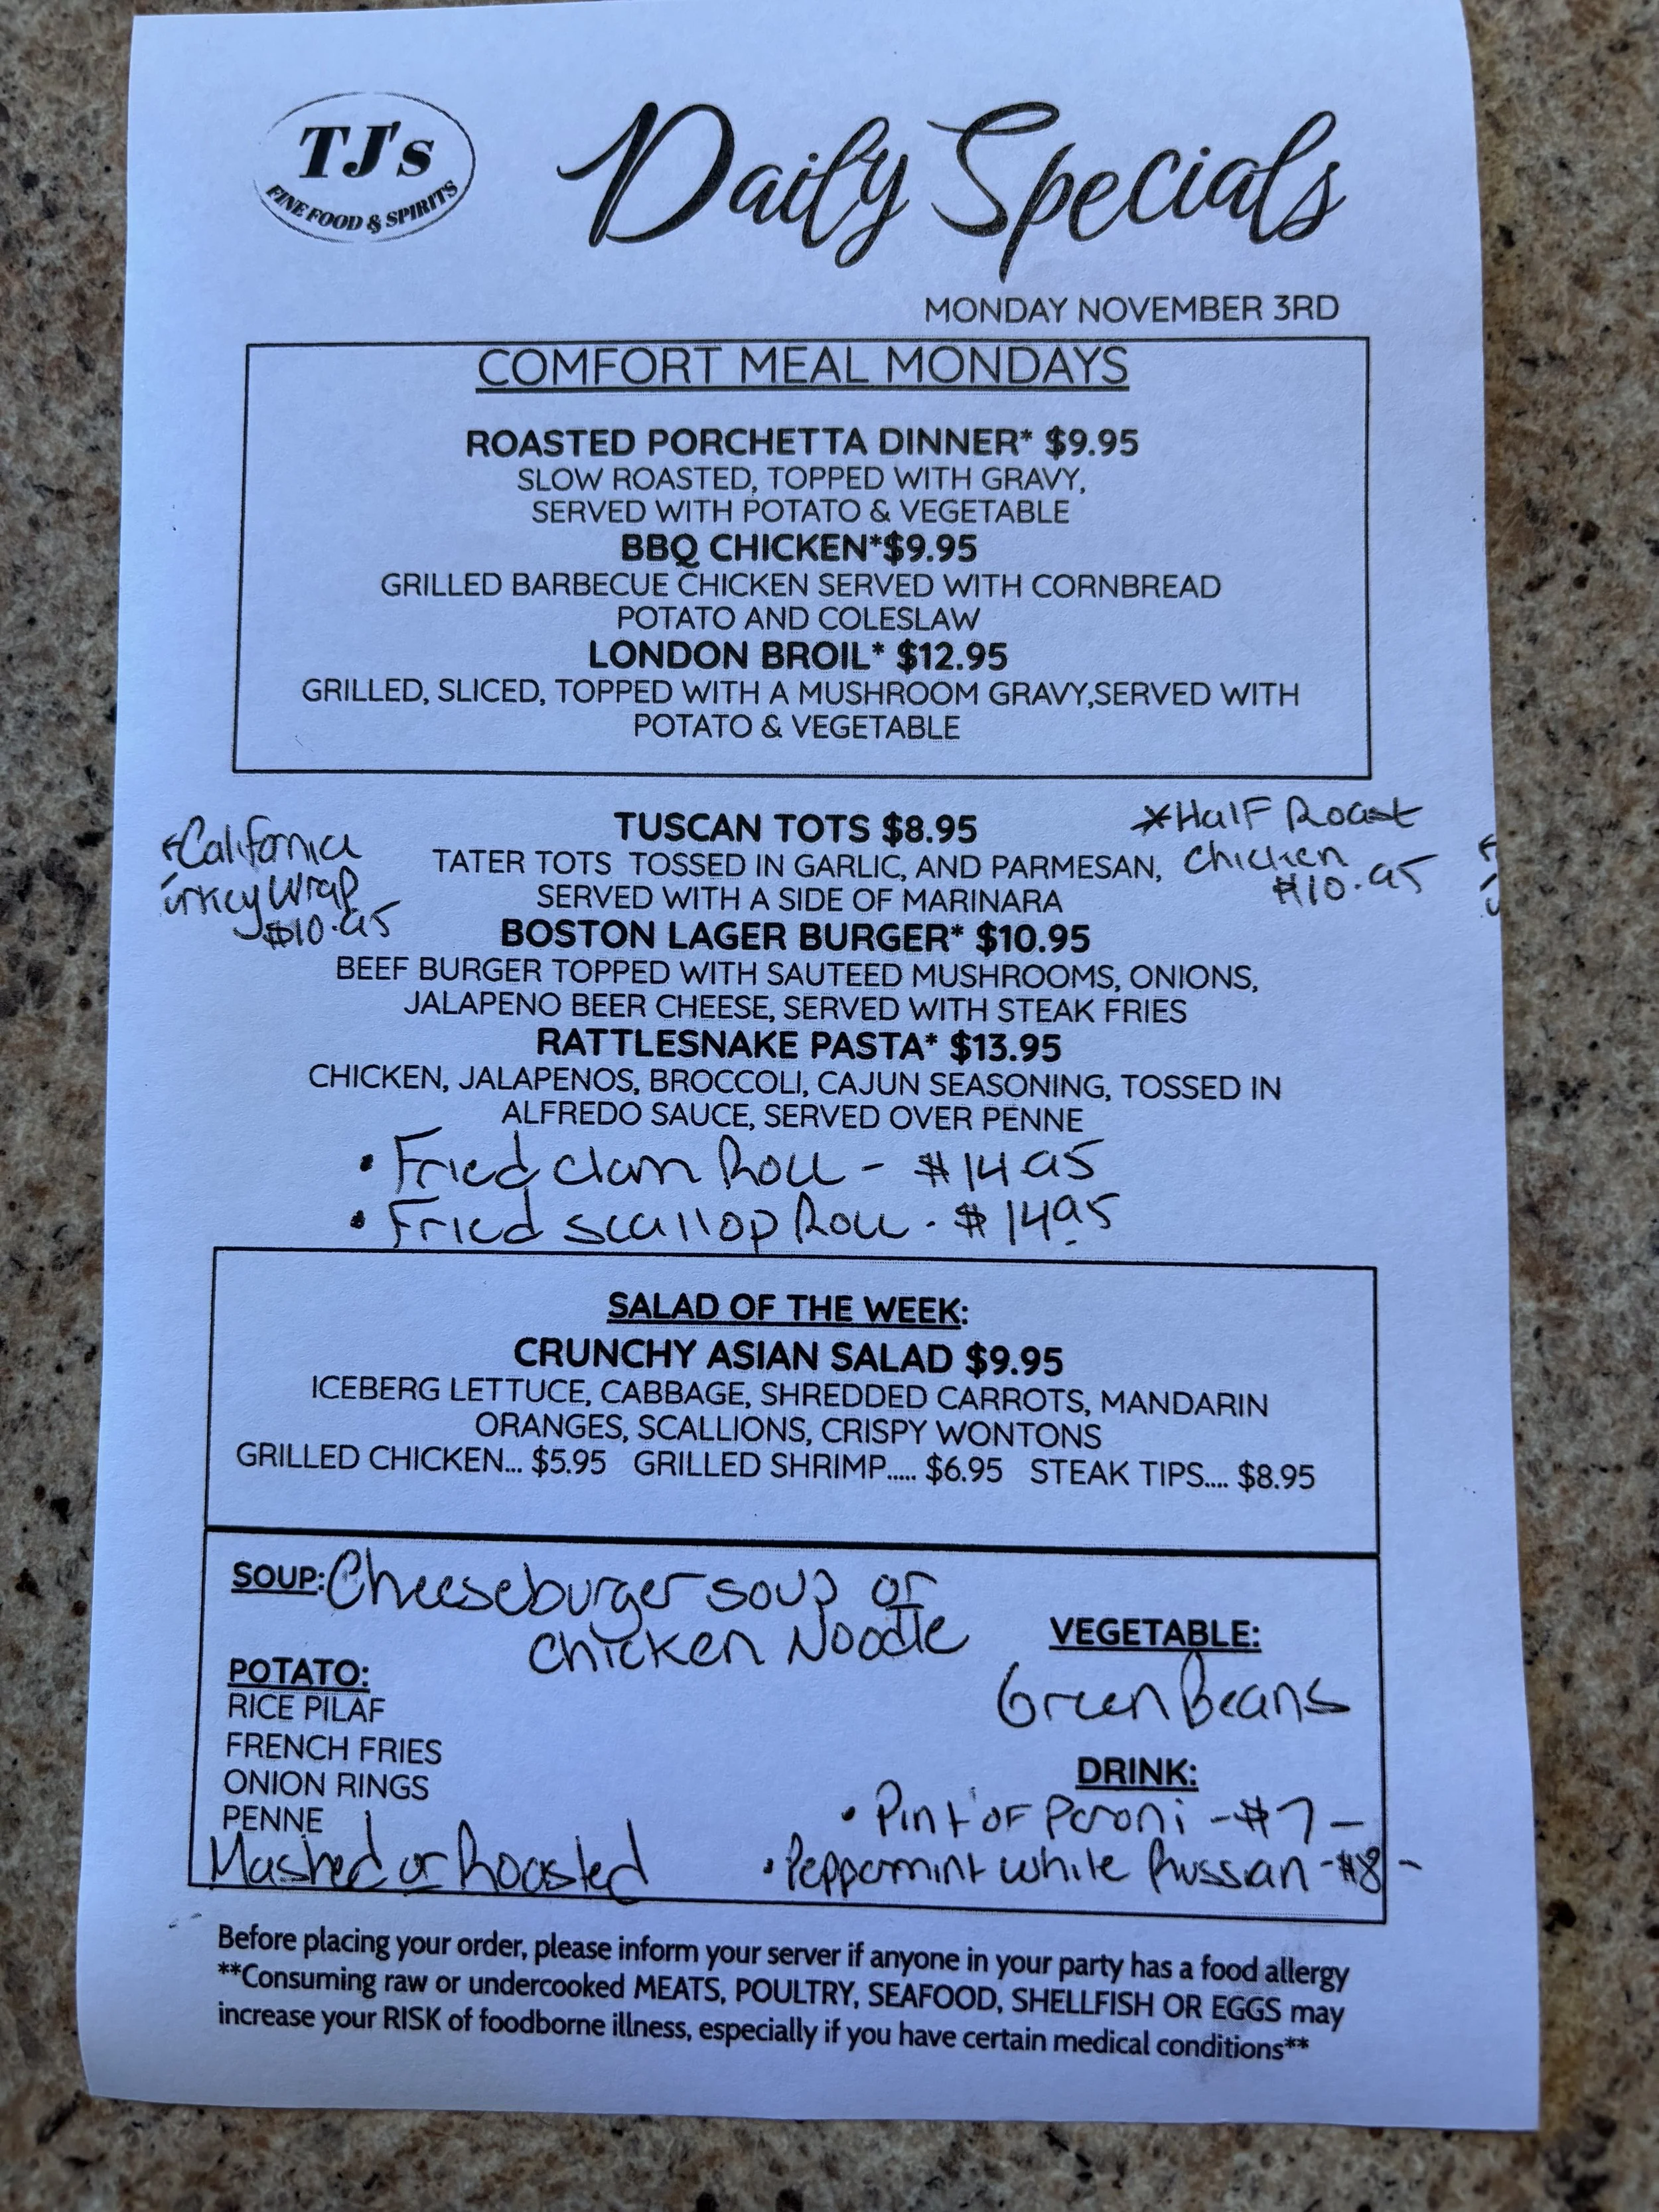 TJ's
FINE FOOD & SPIRITS
Daily Specials
MONDAY NOVEMBER 3RD
COMFORT MEAL MONDAYS
ROASTED PORCHETTA DINNER* $9.95
SLOW ROASTED, TOPPED WITH GRAVY,
SERVED WITH POTATO & VEGETABLE
BBQ CHICKEN*$9.95
GRILLED BARBECUE CHICKEN SERVED WITH CORNBREAD
POTATO AND COLESLAW
LONDON BROIL* $12.95
GRILLED, SLICED, TOPPED WITH A MUSHROOM GRAVY,SERVED WITH
POTATO & VEGETABLE
California
urkey Wrap
$10.95
*Half Roast
Chicken
$10.95
TUSCAN TOTS $8.95
TATER TOTS TOSSED IN GARLIC, AND PARMESAN,
SERVED WITH A SIDE OF MARINARA
BOSTON LAGER BURGER* $10.95
BEEF BURGER TOPPED WITH SAUTEED MUSHROOMS, ONIONS,
JALAPENO BEER CHEESE, SERVED WITH STEAK FRIES
RATTLESNAKE PASTA* $13.95
CHICKEN, JALAPENOS, BROCCOLI, CAJUN SEASONING, TOSSED IN
ALFREDO SAUCE, SERVED OVER PENNE
• Fried clam Roll - $14.95
• Fried scallop Roll - $14.95
SALAD OF THE WEEK:
CRUNCHY ASIAN SALAD $9.95
ICEBERG LETTUCE, CABBAGE, SHREDDED CARROTS, MANDARIN
ORANGES, SCALLIONS, CRISPY WONTONS
GRILLED CHICKEN... $5.95 GRILLED SHRIMP..... $6.95 STEAK TIPS.... $8.95
SOUP: Cheeseburger soup or
Chicken Noodle
POTATO:
RICE PILAF
FRENCH FRIES
ONION RINGS
PENNE
Mashed or Roasted
VEGETABLE:
Green Beans
DRINK:
• Pint of Peroni - $7 -
• Peppermint white Russian - $8 -
Before placing your order, please inform your server if anyone in your party has a food allergy
**Consuming raw or undercooked MEATS, POULTRY, SEAFOOD, SHELLFISH OR EGGS may
increase your RISK of foodborne illness, especially if you have certain medical conditions**